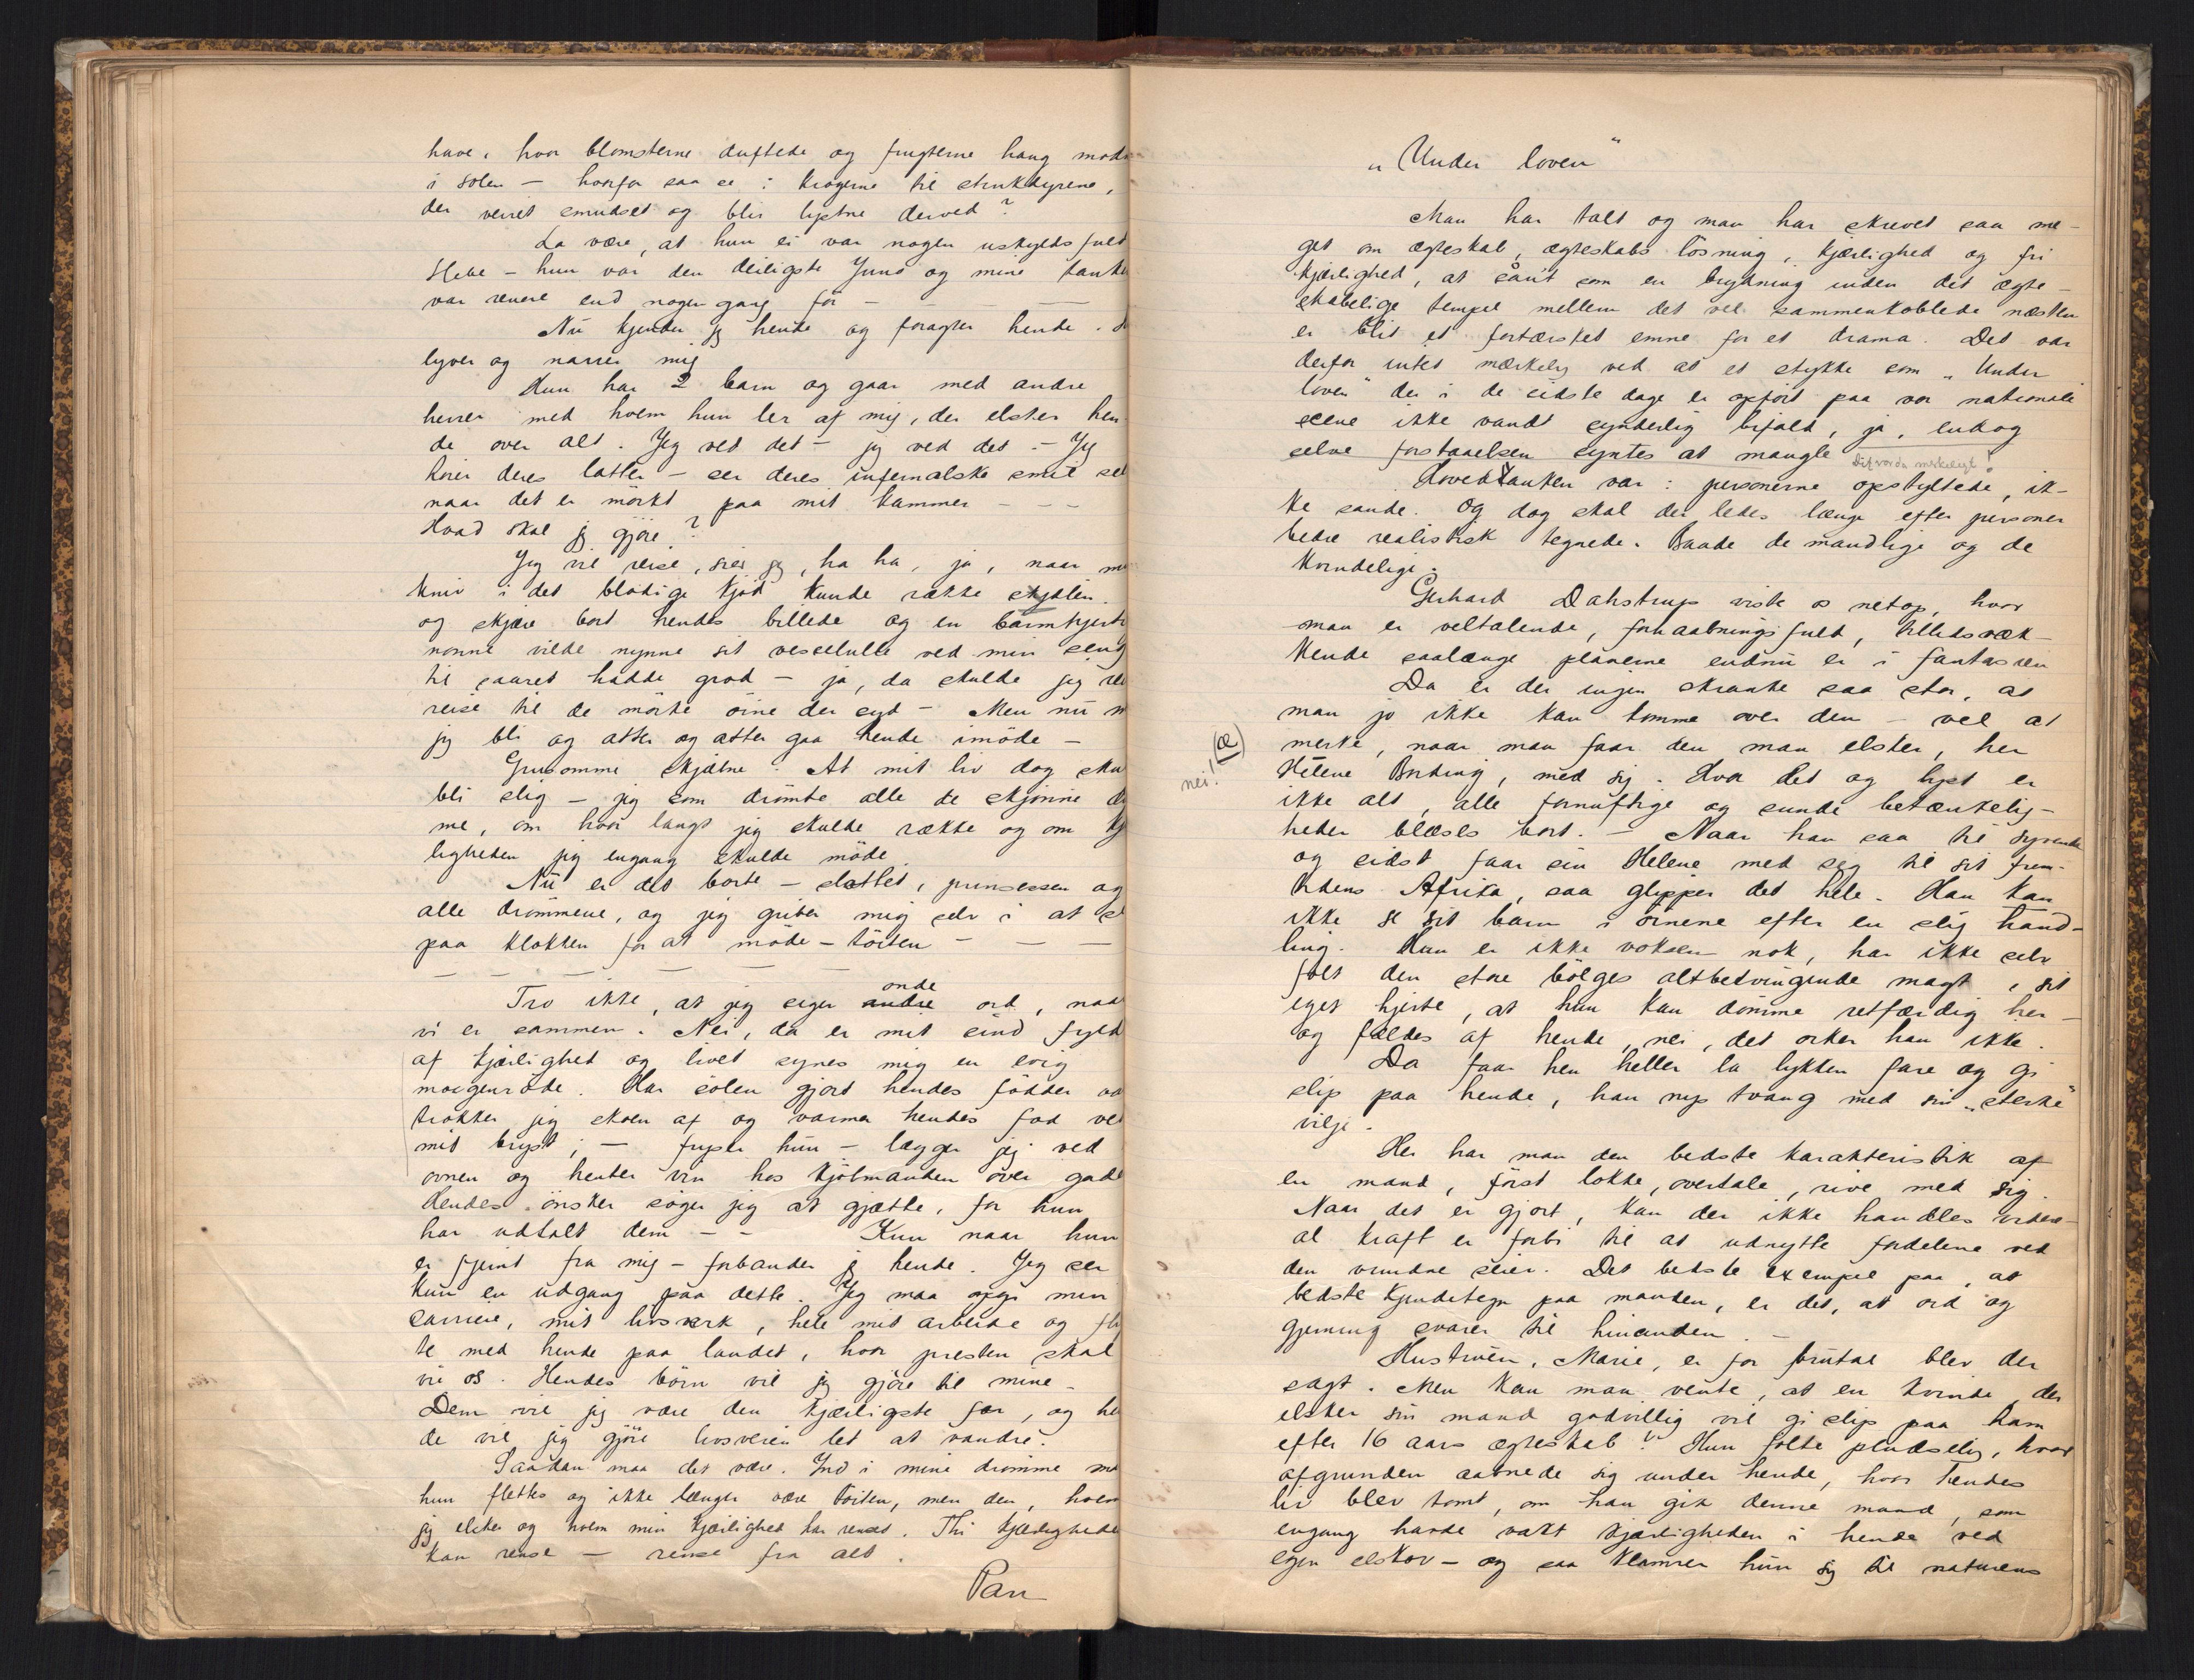 have, hvor blomsterne duftede og frugterne hang modn
i solen — hvorfor saa se i krogene til skrukdyrene,
der verret smudset og blir lystne derved?
La være, at hun ei var nogen uskyldsfuld
Hebe — hun var den deiligste Juno og mine tank
var renere end nogen gang før — — —
Nu kjender jeg hende og foragter hende.
lyver og narrer mig
Hun har 2 barn og gaar med andre
herrer med hvem hun ler af mig, der elsker hen
de over alt. Jeg ved det — jeg ved det. — Jeg
hører deres latter — ser deres infernalske smil sel
naar det er mörkt paa mit kammer — — —
Hvad skal jeg gjöre?
Jeg vil reise, sier jeg, ha ha, ja, naar m
kniv i det blodige kjöd kunde række sjælen
og skjære bort hendes billede og en barmhjerti
nonne vilde nynne sit visselulle ved min seng
til saaret hadde grod — ja, da skulde jeg re
reise til de mörke öine der syd — Men nu m
jeg bli og atter og atter gaa hende imöde —
Grusomme skjæbne. At mit liv dog sku
bli slig — jeg som drömte alle de skjönne d
me, om hvor langt jeg skulde række og om kj
ligheden jeg engang skulde möde.
Nu er det borte — slottet, prinsessen og
alle drömmene, og jeg griber mig selv i at s
paa klokken for at möde — töiten — — —
— — — — — —
onde
Tro ikke, at jeg siger andre ord, naa
vi er sammen. Nei, da er mit sind fyld
af kjærlighed og livet synes mig en evig
morgenröde. Har solen gjort hendes födder
trækker jeg skoen af og varmer hendes fod ve
mit bryst; — fryser hun — lægger jeg ved
ovnen og henter vin hos kjöbmanden over gad
Hendes önsker söger jeg at gjætte, för hun
har udtalt dem — — Kun naar hun
er fjernt fra mig — forbander jeg hende. Jeg ser
kun en udgang paa dette. Jeg maa opgi min
carriere, mit livsverk, hele mit arbeide og fly
te med hende paa landet, hvor presten skal
vie os. Hendes börn vil jeg gjöre til mine —
Dem vil jeg være den kjærligste far, og he
de vil jeg gjöre livsveien let at vandre.
Saadan maa det være. Ind i mine drömme m
hun flettes og ikke længer være töiten, men den, hvem
jeg elsker og hvem min kjærlighed har renset. Thi kjærlighede
kan rense — rense fra alt.
Pan
„Under loven"
Man har talt og man har skrevet saa me-
get om ægteskab, ægteskabs lösning, kjærlighed og fri
kjærlighed, at såvit som en brydning inden det ægte-
skabelige tempel mellem det vel sammenkoblede næsten
er blit et fortærsket emne for et drama. Det var
derfor intet mærkelig ved at et stykke som „Under
loven" der i de sidste dage er opfört paa vor nationale
scene ikke vandt synderlig bifald, ja, endog
selve forstaaelsen syntes at mangle Det var da merkeligt!
Hovedtanken var: personerne opstyltede, ik-
ke sande. Og dog skal der ledes længe efter personer
bedre realistisk tegnede. Baade de mandlige og de
kvindelige.
Gerhard Dahstrup viste os netop, hvor
man er veltalende, forhaabningsfuld, tillidsvæk-
kende saalænge planerne endnu er i fantasien
Da er der ingen skranke saa stor, at
man jo ikke kan komme over den — vel at
merke, naar man faar den man elsker, her
(æ)
nei!
Helene Borking, med sig. Hvor det og lyst er
ikke alt, alle fornuftige og sunde betænkelig-
heder blæses bort. — Naar han saa til syvende
og sidst faar sin Helene med seg til sit frem-
tidens Afrika, saa glipper det hele. Han kan
ikke se sit barn i öinene efter en slig hand-
ling. Hun er ikke voksen nok, har ikke selv
fölt den store bölges altbetvingende magt i sit
eget hjerte, at hun kan dömme retfærdig her —
og fældes af hende, nei, det orker han ikke.
Da faar hen heller la lykken fare og gi
slip paa hende, han nys tvang med sin „sterke"
vilje.
Her har man den bedste karakteristik af
en mand, först lokke, overtale, rive med sig.
Naar det er gjort, kan der ikke handles videre —
al kraft er forbi til at udnytte fordelene ved
den vundne seier. Det bedste exempel paa, at
bedste kjendetegn paa manden, er det, at ord og
gjerning svarer til hinanden. —
Hustruen, Marie, er for brutal blev der
sagt. Men kan man vente, at en kvinde, der
elsker sin mand godvillig vil gi slip paa ham
efter 16 aars ægteskab? Hun fölte pludselig, hvor
afgrunden aabnede sig under hende, hvor hendes
liv blev tomt, om han gik denne mand, som
engang havde vakt kjærligheden i hende ved
egen elskov — og saa klamrer hun sig til naturens